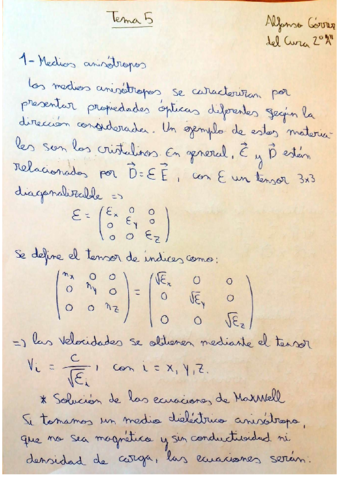 Tema 5
Alfonso Górriz
del Cura 2º "A"
1- Medios anisótropos
Los medios anisótropos se caracterizan por
presentar propiedades ópticas diferentes según la
dirección considerada. Un ejemplo de estos materia-
les son los cristalinos. En general, E⃗ y D⃗ están
relacionados por D⃗ = ε E⃗, con ε un tensor 3x3
diagonalizable =>
ε = ( εx 0 0 ; 0 εy 0 ; 0 0 εz )
Se define el tensor de índices como:
( nx 0 0 ; 0 ny 0 ; 0 0 nz ) = ( √εx 0 0 ; 0 √εy 0 ; 0 0 √εz )
=> las velocidades se obtienen mediante el tensor
Vi = c/√εi, con i = x, y, z.
* Solución de las ecuaciones de Maxwell
Si tomamos un medio dieléctrico anisótropo,
que no sea magnético y sin conductividad ni
densidad de carga, las ecuaciones serán: